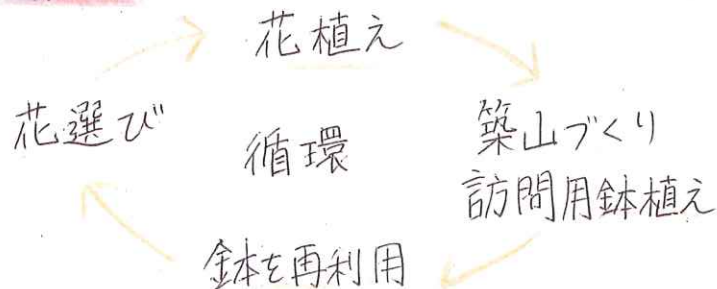 花植え
花選び
循環
築山づくり
訪問用鉢植え
鉢を再利用